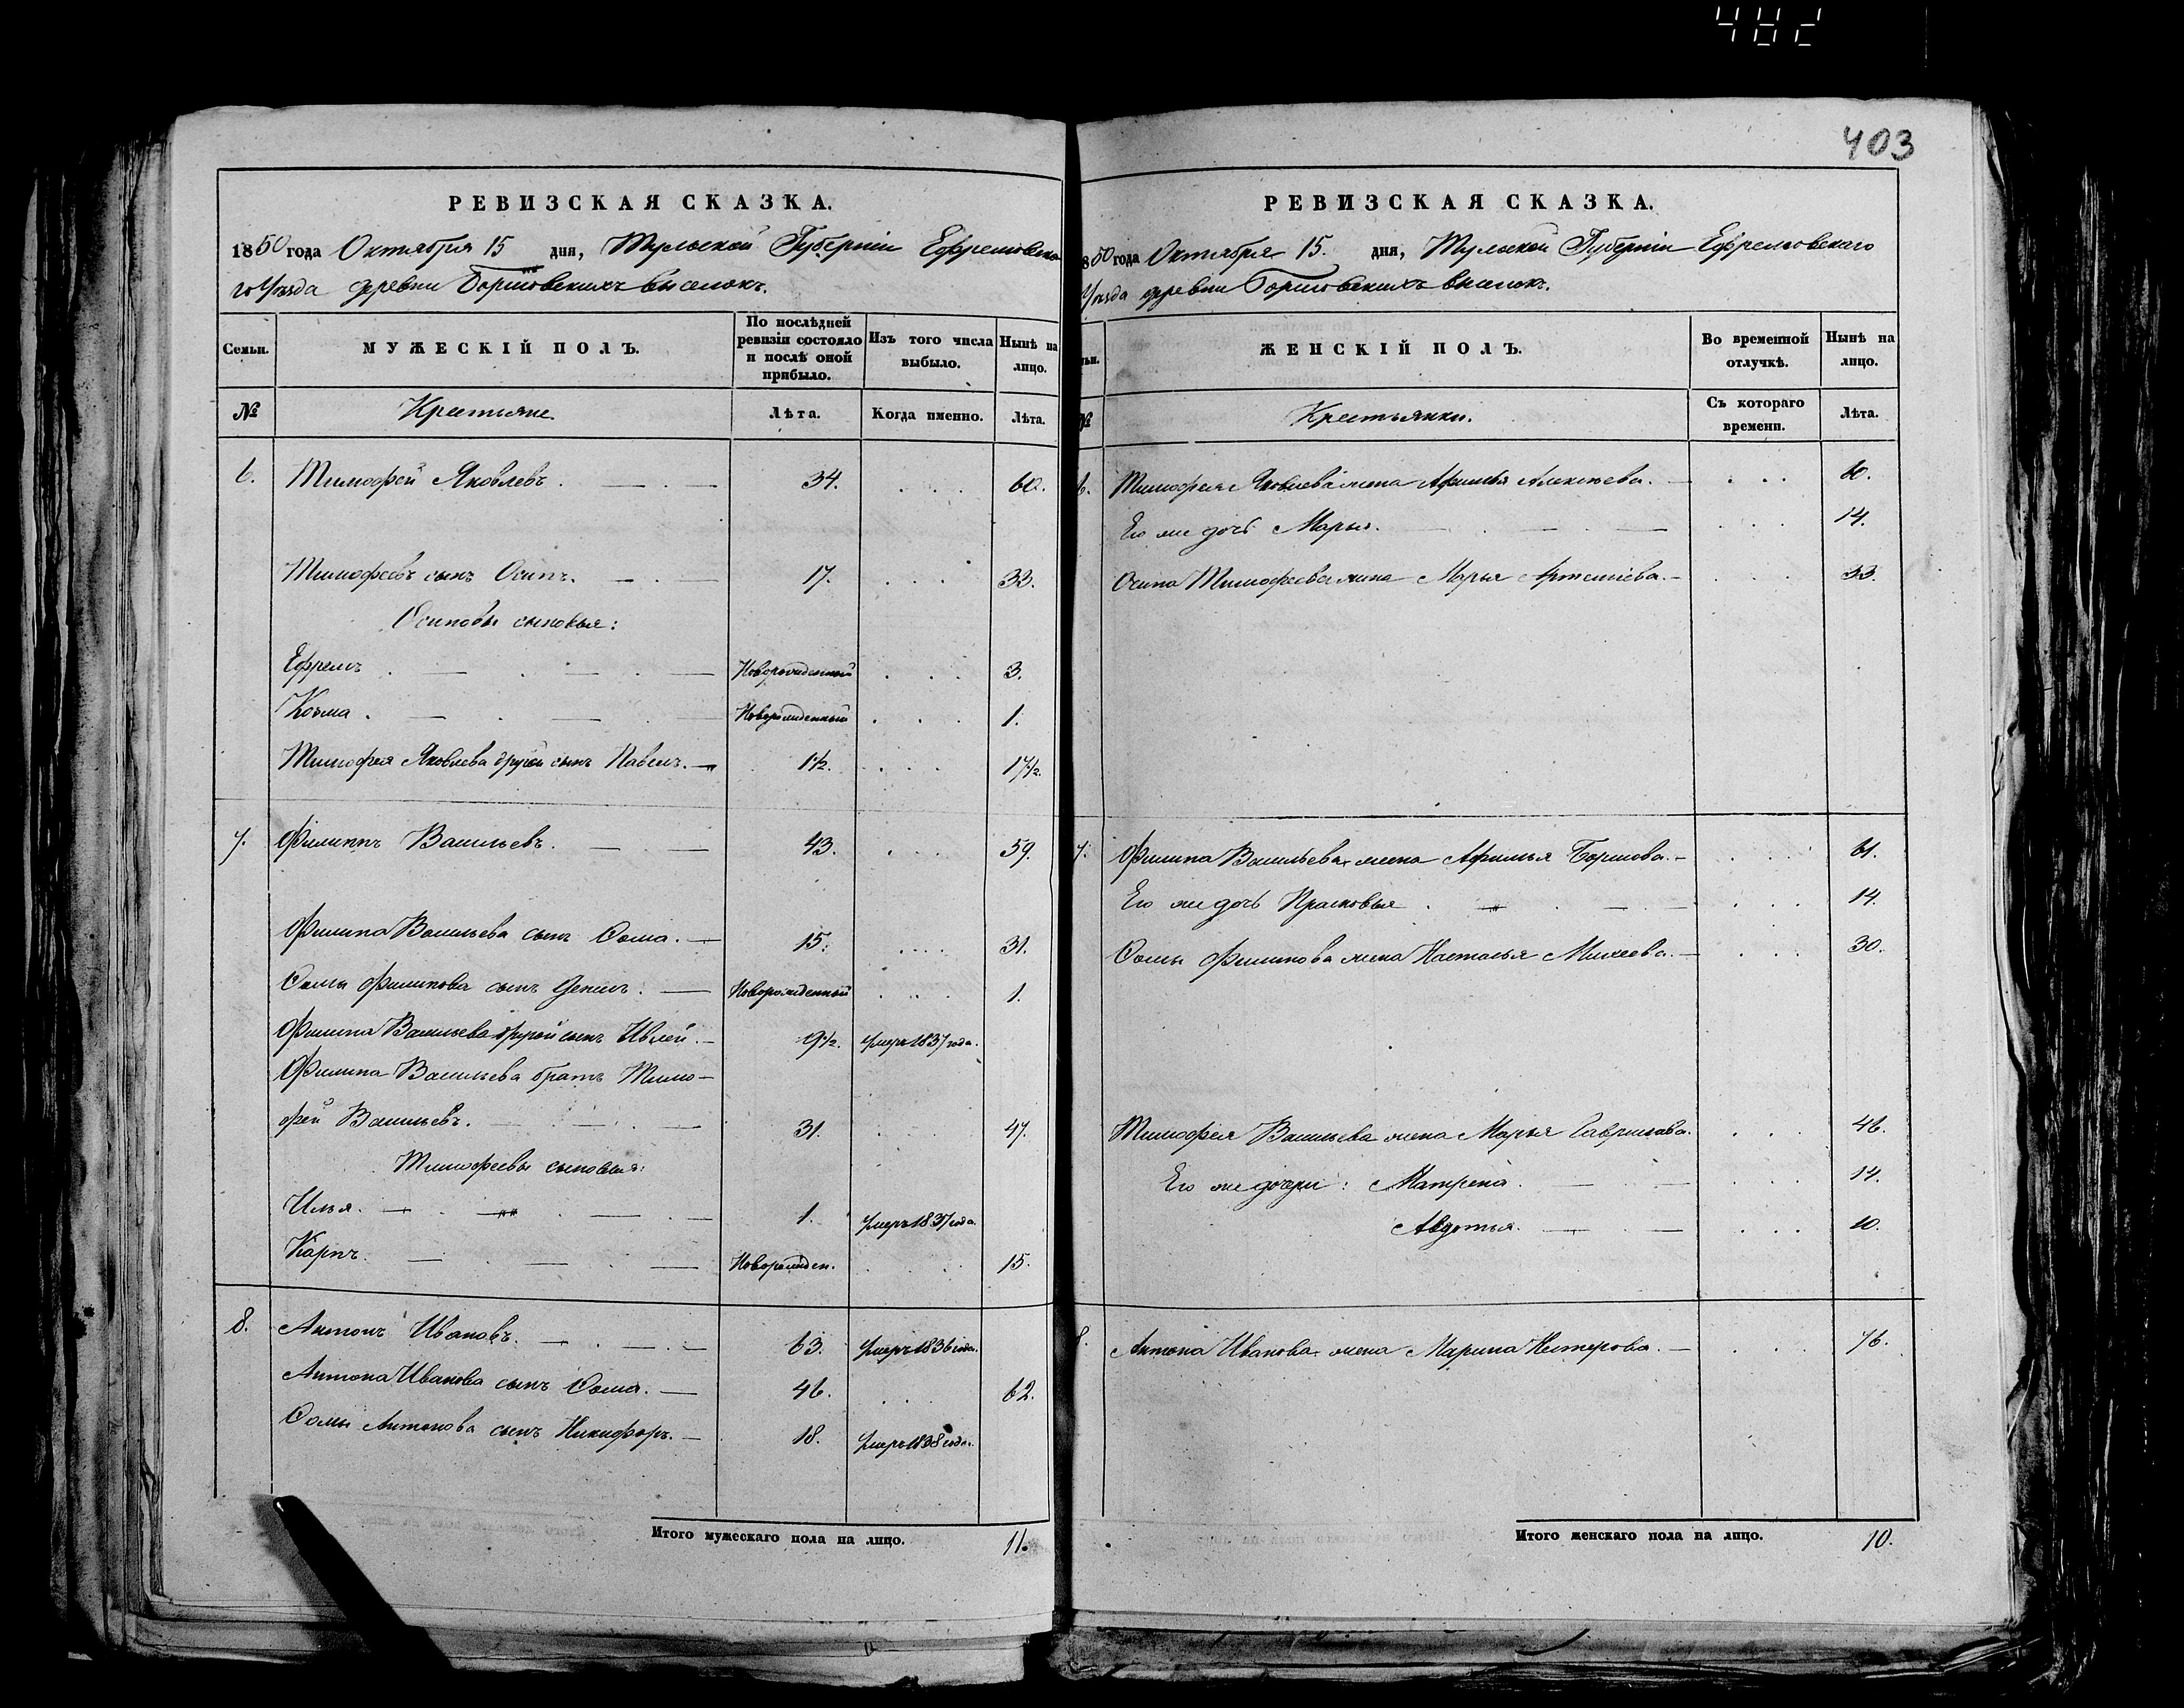 482
403
РЕВИЗСКАЯ СКАЗКА.
1850 года Октября 15 дня, Тульской Губерніи Ефремовска-
го Уѣзда деревни Боршовскихъ выселокъ.
Семьи.
МУЖЕСКІЙ ПОЛЪ.
По послѣдней ревизіи состояло и послѣ оной прибыло.
Изъ того числа выбыло.
Нынѣ на лицо.
№ Крестьяне. Лѣта. Когда именно. Лѣта.
6. Тимофей Яковлевъ. 34. 60.
Тимофеевъ сынъ Осипъ. 17. 33.
Осиповы сыновья:
Ефремъ Новорожденный 3.
Козма. Новорожденный 1.
Тимофея Яковлева другой сынъ Павелъ. 1½. 17½.
7. Филиппъ Васильевъ. 43. 59.
Филипа Васильева сынъ Фома. 15. 31.
Фомы Филипова сынъ Новорожденный 1.
Филипа Васильева другой сынъ 9½. умеръ 1837 года.
Филипа Васильева братъ Тимо-
фей Васильевъ. 31. 47.
Тимофеевы сыновья:
Илья. 1. умеръ 1837 года.
Карпъ. Новорожден. 15.
8. Антонъ Ивановъ. 63. умеръ 1836 года.
Антона Иванова сынъ Фома. 46. 62.
Фомы Антонова сынъ Никифоръ. 18. умеръ 1838 года.
Итого мужескаго пола на лицо. 11.
РЕВИЗСКАЯ СКАЗКА.
850 года Октября 15. дня, Тульской Губерніи Ефремовскаго
Уѣзда деревни Боршовскихъ выселокъ.
ьи.
ЖЕНСКІЙ ПОЛЪ.
Во временной отлучкѣ.
Нынѣ на лицо.
№ Крестьянки. Съ котораго времени. Лѣта.
6. Тимофея Яковлева жена Афимья Алексѣева. 60.
Его же дочь Марья. 14.
Осипа Тимофеева жена Марья Артемьева. 33.
7. Филипа Васильева жена Афимья 61.
Его же дочь Прасковья 14.
Фомы Филипова жена Настасья Михеева. 30.
Тимофея Васильева жена Марья Гаврилова. 46.
Его же дочери: Матрена. 14.
Авдотья. 10.
8. Антона Иванова жена Марина Нестерова. 76.
Итого женскаго пола на лицо. 10.